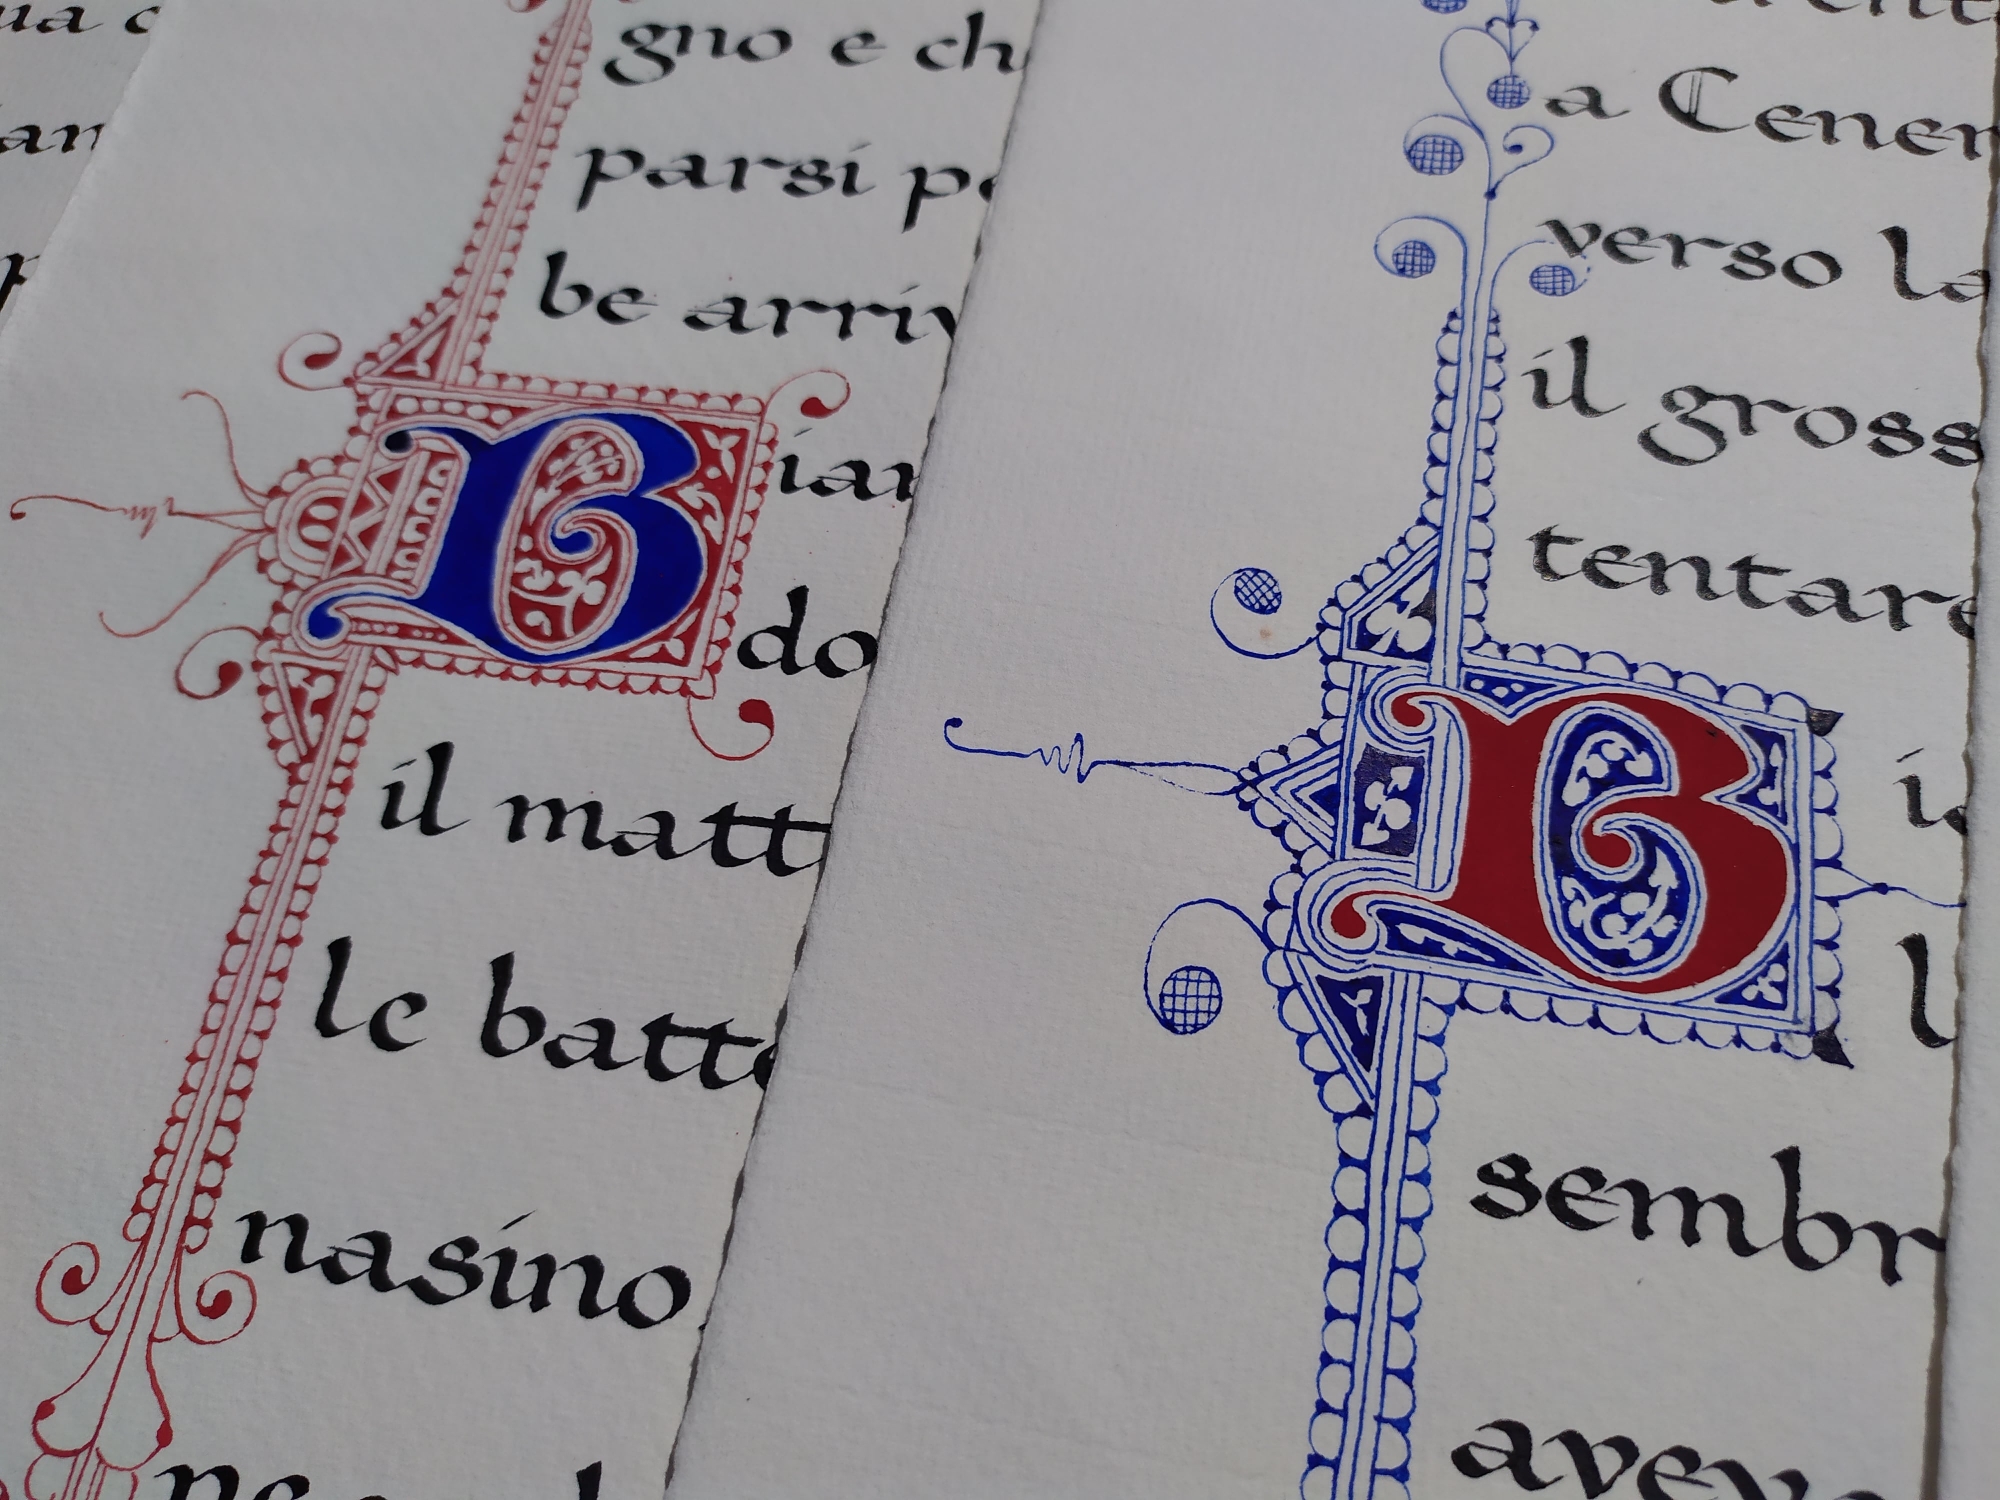 gno e ch
parsi p
be arriv
B
iar
do
il matt
le batte
nasino
a Cener
verso la
il gross
tentare
B
i
l
sembr
avev